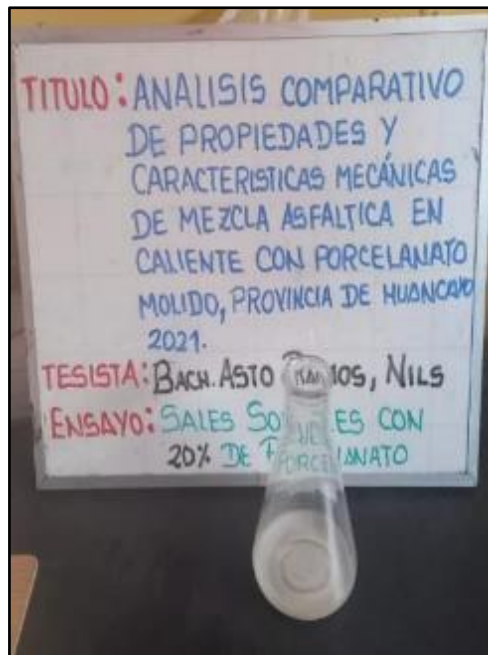 TITULO: ANALISIS COMPARATIVO
DE PROPIEDADES Y
CARACTERISTICAS MECÁNICAS
DE MEZCLA ASFALTICA EN
CALIENTE CON PORCELANATO
MOLIDO, PROVINCIA DE HUANCAYO
2021.
TESISTA: BACH. ASTO RAMOS, NILS
ENSAYO: SALES SOLUBLES CON
20% DE PORCELANATO